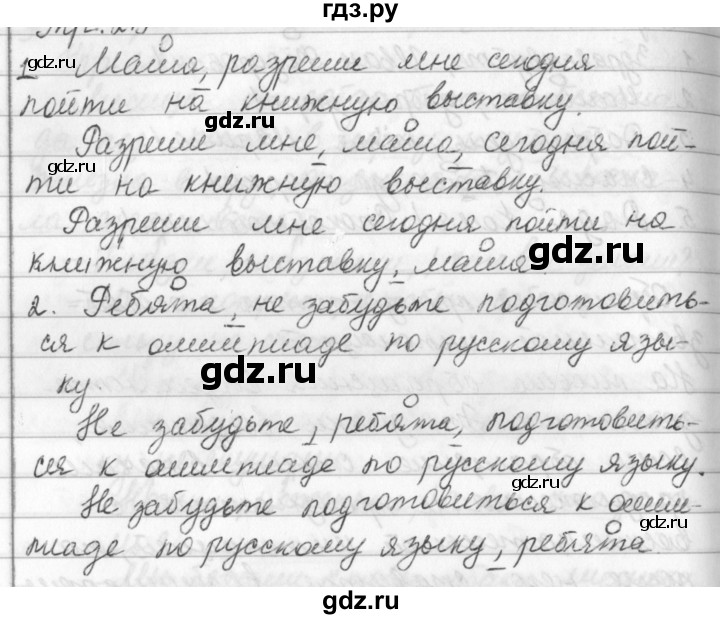 гдз.ру
gdz.ru
1. Маша, разреши мне сегодня
пойти на книжную выставку.
gdz.ru
gdz.ru
Разреши мне, маша, сегодня пой-
gdz.ru
ти на книжную выставку.
Разреши мне сегодня пойти на
gdz.ru
книжную выставку, маша
2. Ребята, не забудьте подготовить-
ся к олимпиаде по русскому язы-
gdz.ru
ку
Не забудьте, ребята, подготовить-
ся к олимпиаде по русскому языку.
gdz.ru
Не забудьте подготовиться к олим-
gdz.ru
gdz.ru
пиаде по русскому языку, ребята.
gdz.ru